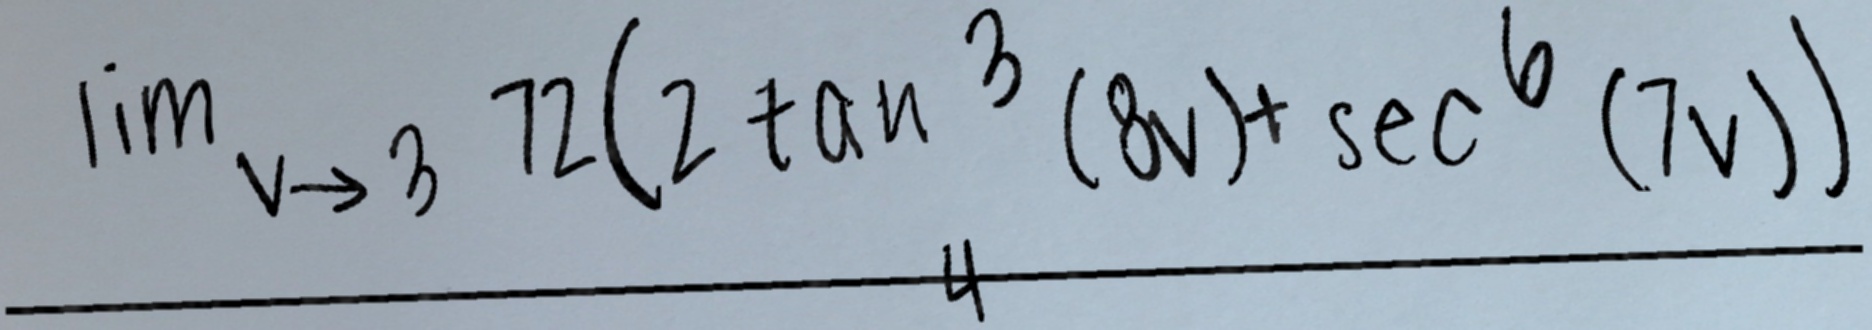 lim v→3 72(2 tan^3 (8v)+ sec^6 (7v))
4